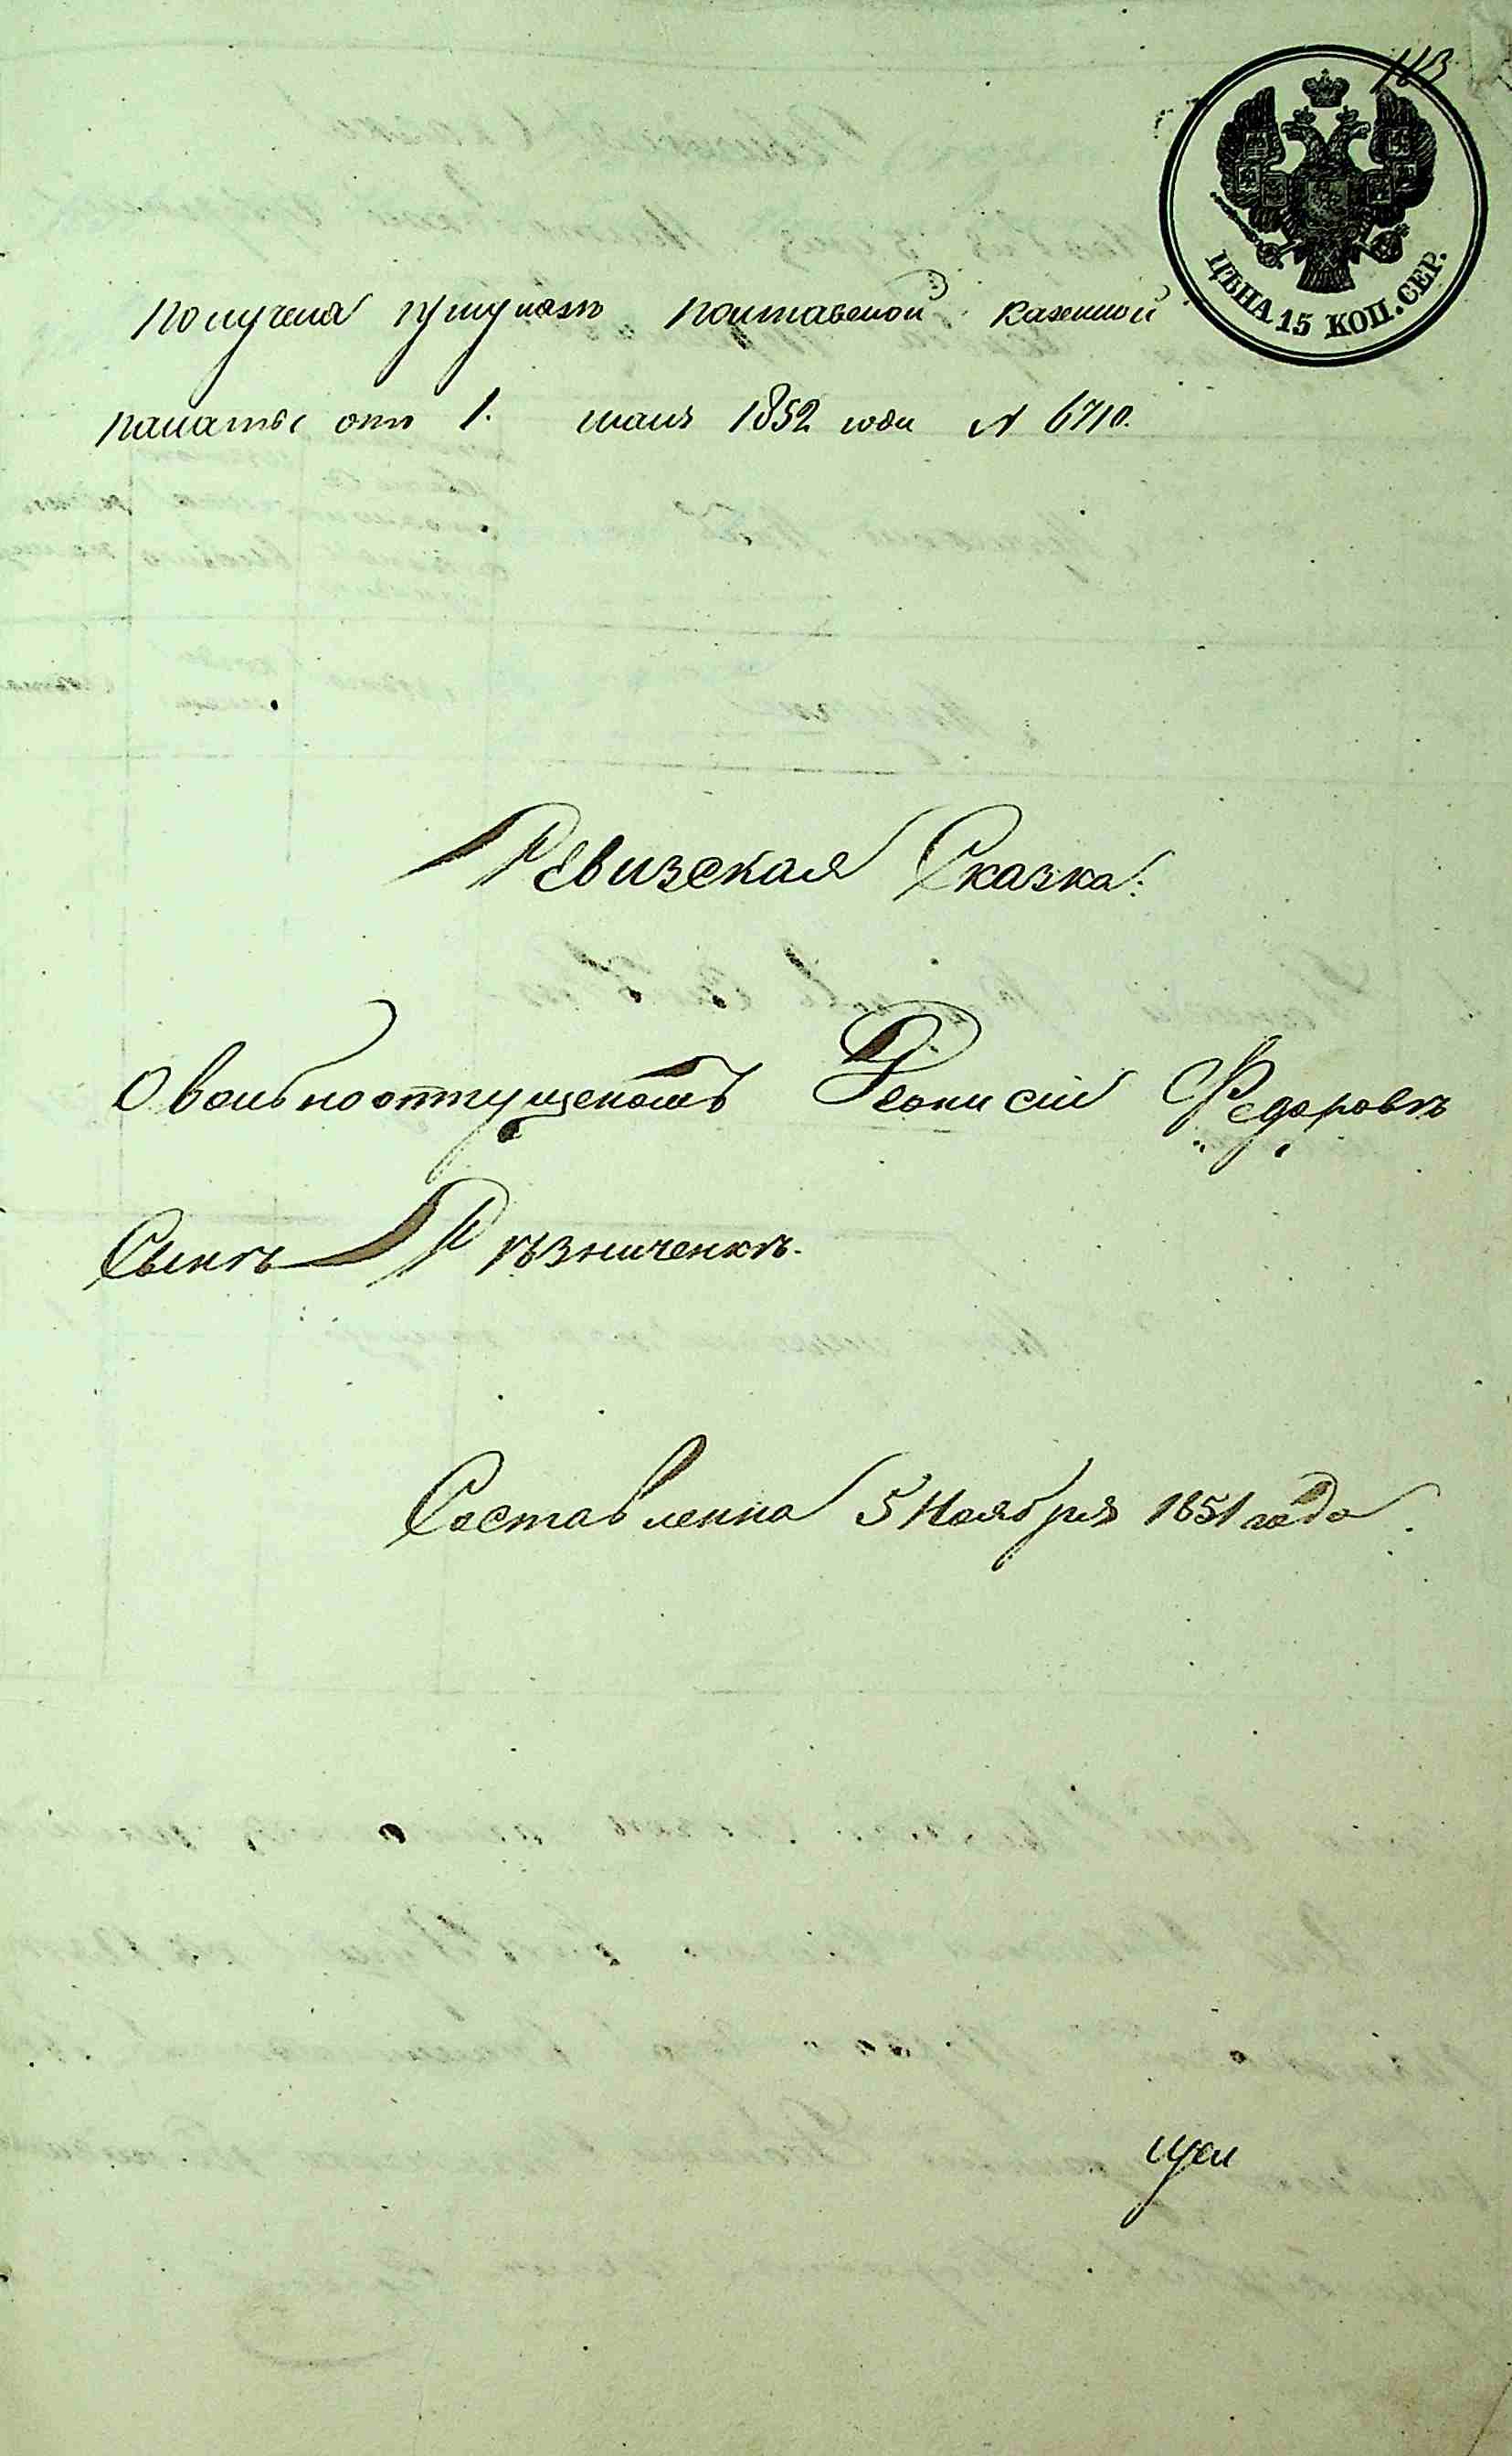 113
ЦѢНА 15 КОП. СЕР.
Получена при указѣ Полтавской Казенной
Палаты отъ 1. мая 1852 года № 6710.
Ревизская Сказка:
О вольноотпущеномъ Деонисіи Федоровѣ
Сынѣ Рѣзниченкѣ.
Составленна 5 Ноября 1851 года.